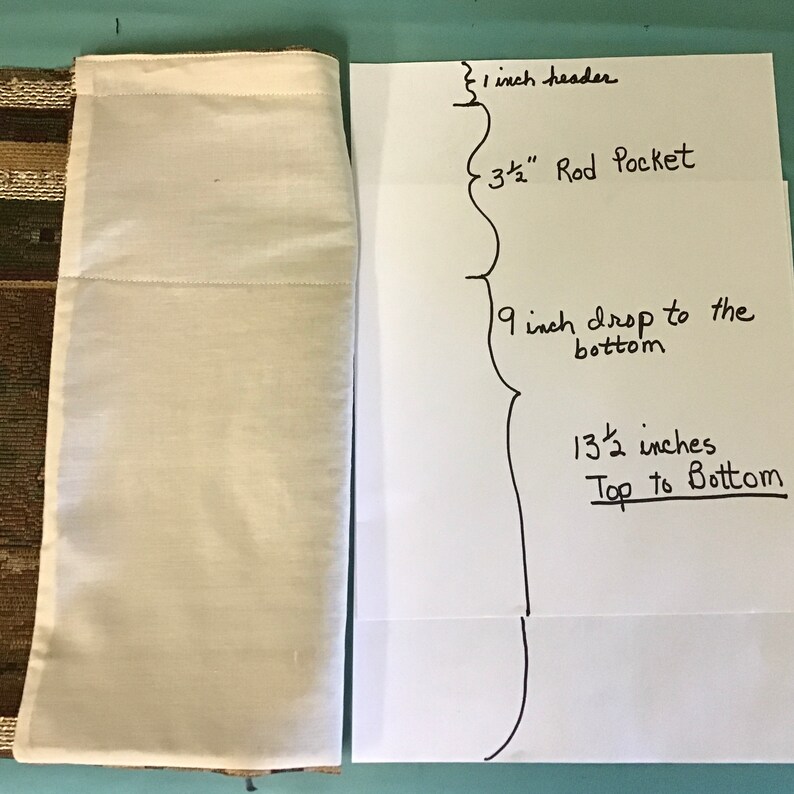 1 inch header
3 1/2" Rod Pocket
9 inch drop to the
bottom
13 1/2 inches
Top to Bottom